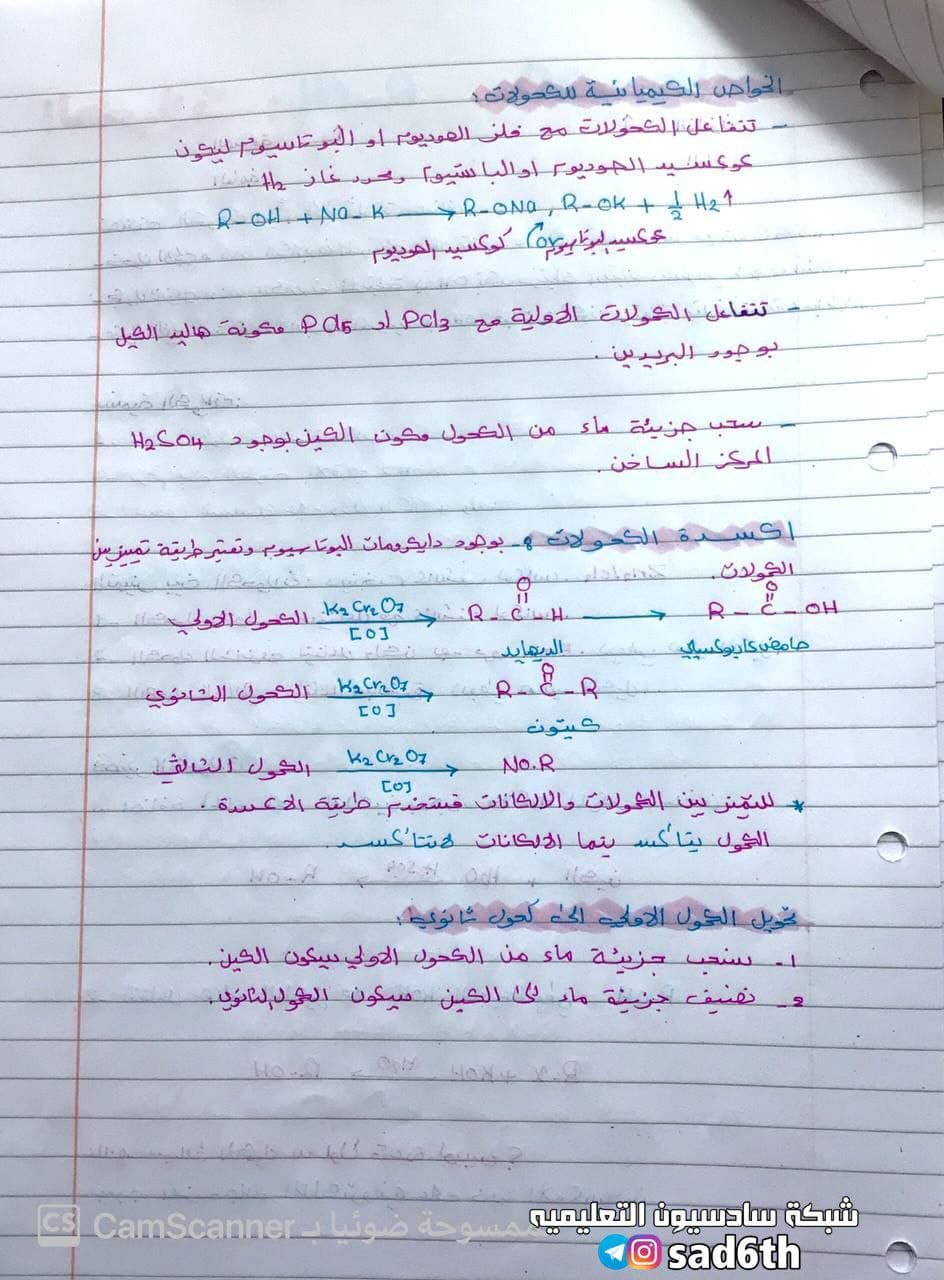 الخواص الكيميائية للكحولات :
- تتفاعل الكحولات مع فلز الصوديوم او البوتاسيوم ليكون
كوكسيد الصوديوم او الباستيوم ومحرر غاز H₂ .
R-OH + Na - K ⟶ R-ONa , R-OK + ½ H₂↑
كوكسيد البوتاسيوم or كوكسيد الصوديوم
- تتفاعل الكحولات الاولية مع PCl3 او PCl5 مكونة هاليد الكيل
بوجود البريدين .
- سحب جزيئة ماء من الكحول مكون الكين بوجود H2SO4
المركز الساخن .
اكسدة الكحولات :- بوجود دايكرومات البوتاسيوم وتعتبر طريقة تمييز بين
الكحولات .
الكحول الاولي K2Cr2O7 [O] ⟶ R-C(=O)-H ⟶ R-C(=O)-OH
الديهايد حامض كاربوكسيلي
الكحول الثانوي K2Cr2O7 [O] ⟶ R-C(=O)-R
كيتون
الكحول الثالثي K2Cr2O7 [O] ⟶ No.R
* للتميز بين الكحولات والالكانات فستخدم طريقة الاكسدة .
الكحول يتأكسد بينما الالكانات لا تتأكسد .
تحويل الكحول الاولي الى كحول ثانوي :
1- سحب جزيئة ماء من الكحول الاولي سيكون الكين .
2- نضيف جزيئة ماء الى الكين سيكون الكحول الثانوي .
CS CamScanner ممسوحة ضوئيا بـ
شبكة سادسيون التعليميه
sad6th